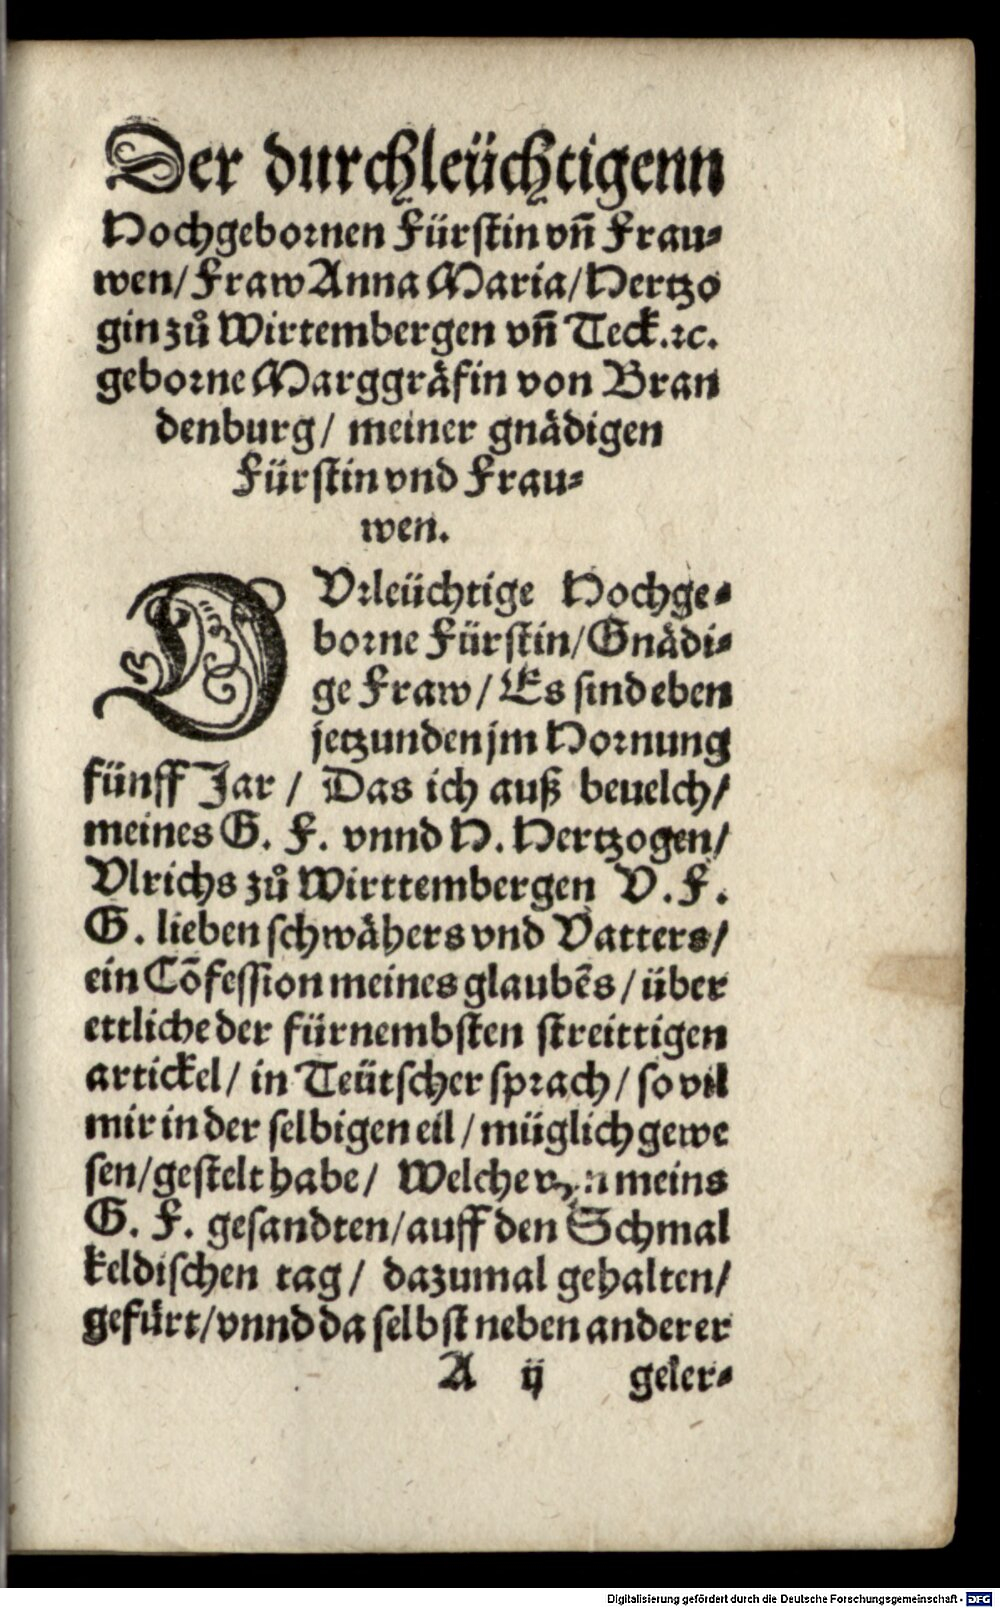 Der durchleüchtigenn
Hochgebornen Fürstin vñ Frau⸗
wen/ Fraw Anna Maria/ Hertzo
gin zů Wirtembergen vñ Teck.ꝛc.
geborne Marggräfin von Bran
denburg/ meiner gnädigen
Fürstin vnd Frau⸗
wen.
DVrleüchtige Hochge⸗
borne Fürstin/ Gnädi⸗
ge Fraw/ Es sind eben
jetzunden jm Hornung
fünff Jar / Das ich auß beuelch/
meines G. F. vnnd H. Hertzogen/
Vlrichs zů Wirttembergen V. F.
G. lieben schwähers vnd Vatters/
ein Cõfession meines glaubẽs / über
ettliche der fürnembsten streittigen
artickel/ in Teütscher sprach/ so vil
mir in der selbigen eil / müglich gewe
sen/ gestelt habe/ Welche meins
G. F. gesandten/ auff den Schmal
keldischen tag / dazumal gehalten/
gefürt/ vnnd da selbst neben anderer
A ij geler⸗
Digitalisierung gefördert durch die Deutsche Forschungsgemeinschaft - DFG